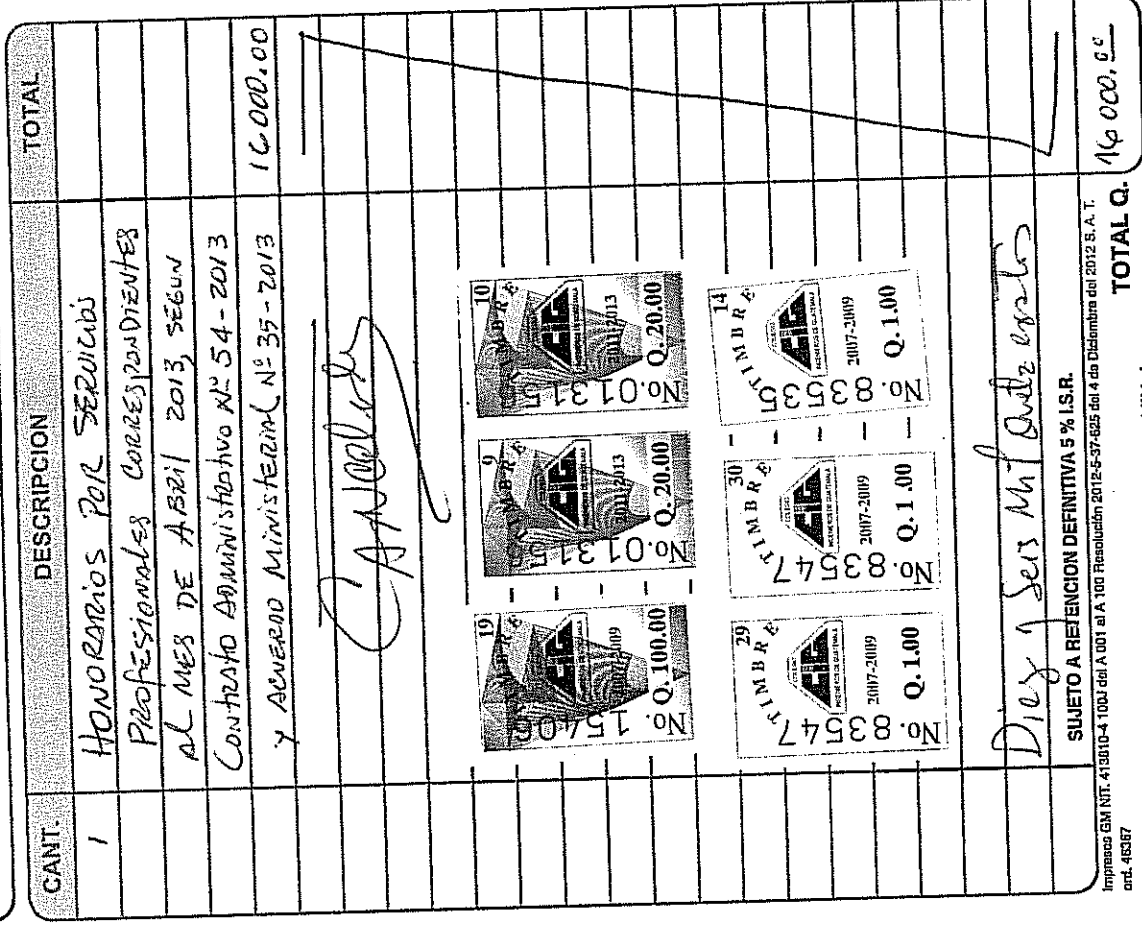 CANT. DESCRIPCION TOTAL
1 HONORARIOS POR SERVICIOS
PROFESIONALES CORRESPONDIENTES
AL MES DE ABRIL 2013, SEGUN
CONTRATO ADMINISTRATIVO Nº 54-2013
Y ACUERDO MINISTERIAL Nº 35-2013 16000.00
19 TIMBRE
2007-2009
Q. 100.00
No. 15406
9 TIMBRE
2011-2013
Q. 20.00
No. 01315
10 TIMBRE
2011-2013
Q. 20.00
No. 01315
29 TIMBRE
2007-2009
Q. 1.00
No. 83547
30 TIMBRE
2007-2009
Q. 1.00
No. 83547
14 TIMBRE
2007-2009
Q. 1.00
No. 83535
Diez y Seis Mil Quetzales
SUJETO A RETENCION DEFINITIVA 5 % I.S.R.
Impresos GM NIT. 413810-4 100J del A 001 al A 100 Resolución 2012-5-37-625 del 4 de Diciembre del 2012 S.A.T.
ord. 46367
TOTAL Q. 16 000.00